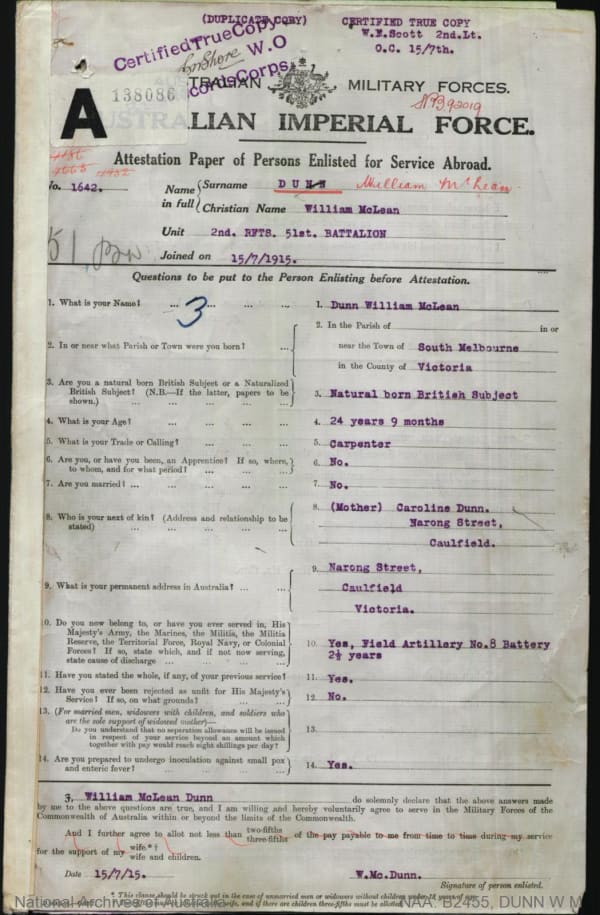 (DUPLICATE COPY) CERTIFIED TRUE COPY
W.E.Scott 2nd.Lt.
O.C. 15/7th.
Certified True Copy
W.O
ords Corps.
138086
A
TRALIAN MILITARY FORCES.
LIAN IMPERIAL FORCE.
Attestation Paper of Persons Enlisted for Service Abroad.
No. 1642.
Name in full
Surname DUNN William McLean
Christian Name William McLean
Unit 2nd. RFTS. 51st. BATTALION
Joined on 15/7/1915.
51
Questions to be put to the Person Enlisting before Attestation.
3
1. What is your Name? ... ... ... ... 1. Dunn William McLean
2. In or near what Parish or Town were you born? ... 2. In the Parish of in or
near the Town of South Melbourne
in the County of Victoria
3. Are you a natural born British Subject or a Naturalized
British Subject? (N.B.—If the latter, papers to be
shown.) ... ... ... ... ... 3. Natural born British Subject
4. What is your Age? ... ... ... ... 4. 24 years 9 months
5. What is your Trade or Calling? ... ... ... 5. Carpenter
6. Are you, or have you been, an Apprentice? If so, where,
to whom, and for what period? ... ... ... 6. No.
7. Are you married? ... ... ... ... ... 7. No.
8. Who is your next of kin? (Address and relationship to be
stated) ... ... ... ... ... 8. (Mother) Caroline Dunn.
Narong Street,
Caulfield.
9. What is your permanent address in Australia? ... ... 9. Narong Street,
Caulfield
Victoria.
10. Do you now belong to, or have you ever served in, His
Majesty's Army, the Marines, the Militia, the Militia
Reserve, the Territorial Force, Royal Navy, or Colonial
Forces? If so, state which, and if not now serving,
state cause of discharge ... ... ... ... 10. Yes, Field Artillery No.8 Battery
2½ years
11. Have you stated the whole, if any, of your previous service? 11. Yes.
12. Have you ever been rejected as unfit for His Majesty's
Service? If so, on what grounds? ... ... ... 12. No.
13. (For married men, widowers with children, and soldiers who
are the sole support of widowed mother)—
Do you understand that no separation allowance will be issued
in respect of your service beyond an amount which
together with pay would reach eight shillings per day? 13.
14. Are you prepared to undergo inoculation against small pox
and enteric fever? ... ... ... ... 14. Yes.
I, William McLean Dunn do solemnly declare that the above answers made
by me to the above questions are true, and I am willing and hereby voluntarily agree to serve in the Military Forces of the
Commonwealth of Australia within or beyond the limits of the Commonwealth.
And I further agree to allot not less than two-fifths three-fifths of the pay payable to me from time to time during my service
for the support of my wife.*†
wife and children.
Date 15/7/15. W.Mc.Dunn.
Signature of person enlisted.
* This clause should be struck out in the case of unmarried men or widowers without children under 18 years of age.
National Archives of Australia NAA: B2455, DUNN W M